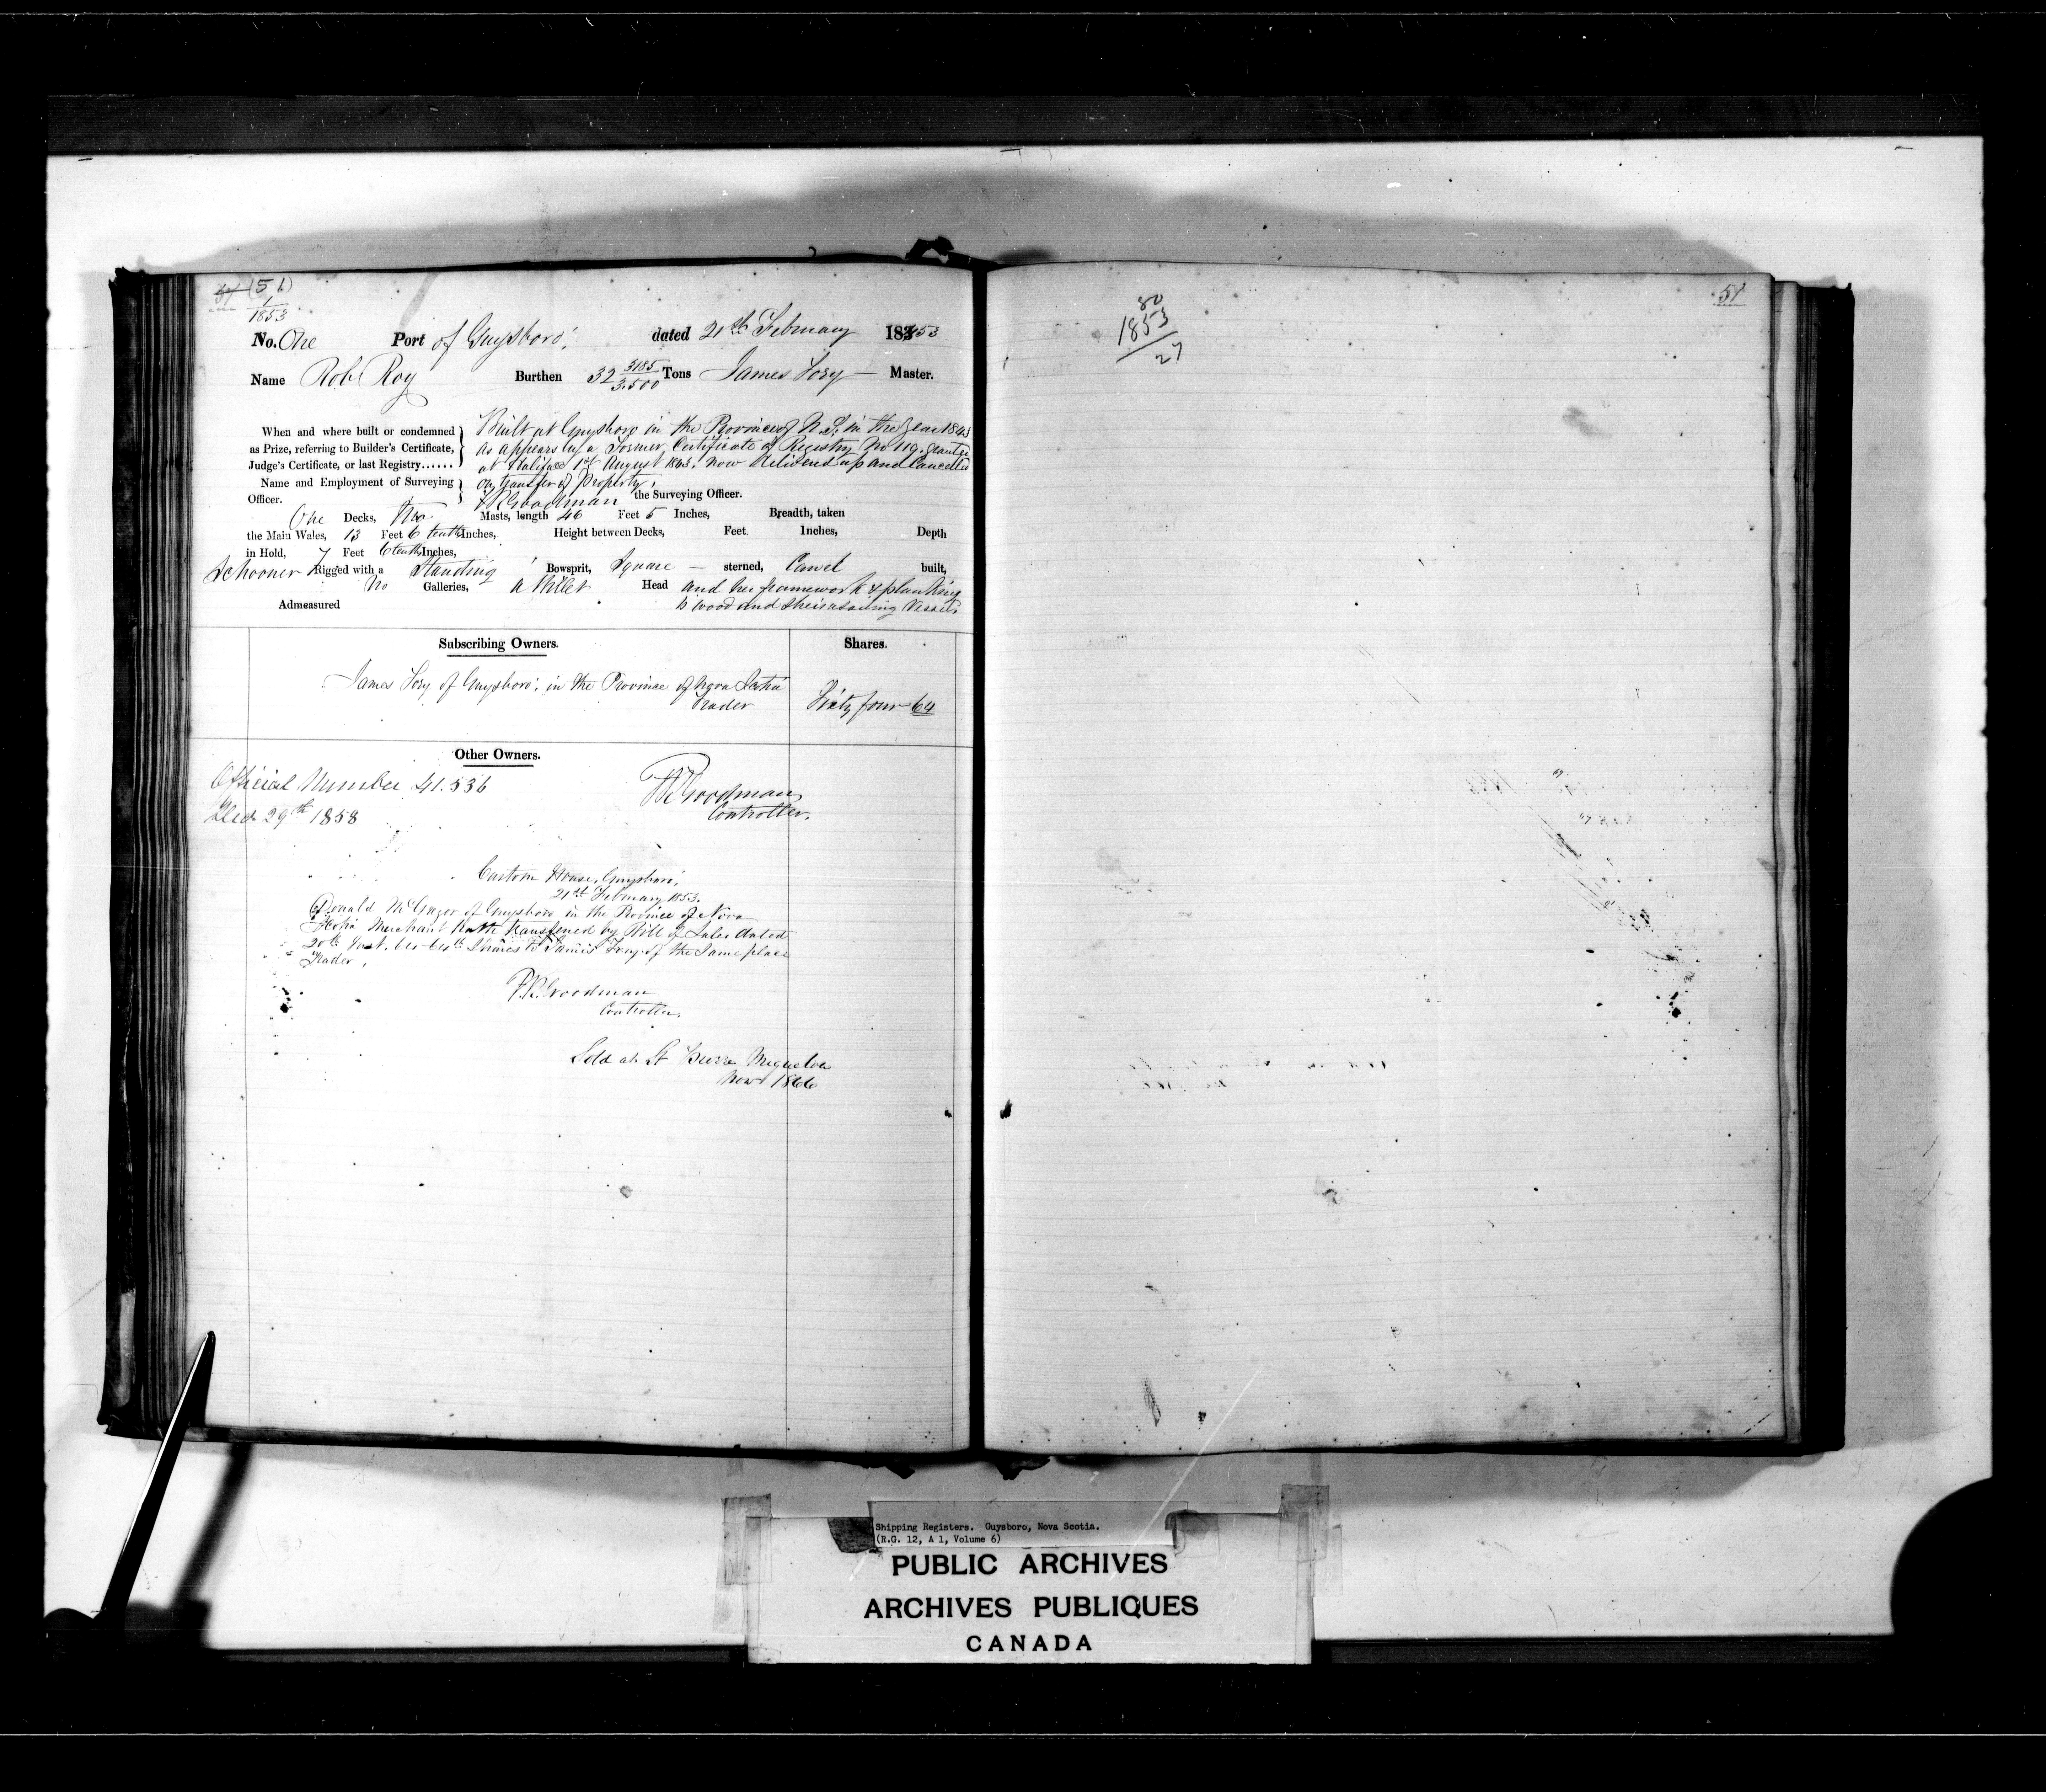 (51)
1
1853
No. One Port of Guysboro', dated 21st February 1853
Name Rob Roy Burthen 32 3185/3.500 Tons James Tory — Master.
When and where built or condemned
as Prize, referring to Builder's Certificate,
Judge's Certificate, or last Registry......
Built at Guysboro in the Province of N.S. in the Year 1843
as appears by a Former Certificate of Registry No 119. granted
at Halifax 1st August 1843. now delivered up and Cancelled
on transfer of Property.
Name and Employment of Surveying
Officer.
Goodman the Surveying Officer.
One Decks, Two Masts, length 46 Feet 5 Inches, Breadth, taken
the Main Wales, 13 Feet 6 tenths Inches, Height between Decks, Feet Inches, Depth
in Hold, 7 Feet 6 tenths Inches,
Schooner Rigged with a Standing Bowsprit, Square — sterned, Carvel built,
No Galleries, a Billet Head and her framework & planking
Admeasured is wood and she is a sailing Vessel.
Subscribing Owners. Shares.
James Tory of Guysboro', in the Province of Nova Scotia
Trader Sixty four 64
Other Owners.
Official Number 41.536
Decr 29th 1858
Goodman
Controller.
Custom House, Guysboro',
21st February 1853.
Donald of Guysboro in the Province of Nova
Scotia Merchant hath transferred by Bill of Sale dated
20th Inst. 64-64th Shares to James Tory of the Same place
Trader.
Goodman
Controller.
Sold at St Pierre Miquelon
Novr 1866
80
1853
27
51
Shipping Registers. Guysboro, Nova Scotia.
(R.G. 12, A 1, Volume 6)
PUBLIC ARCHIVES
ARCHIVES PUBLIQUES
CANADA